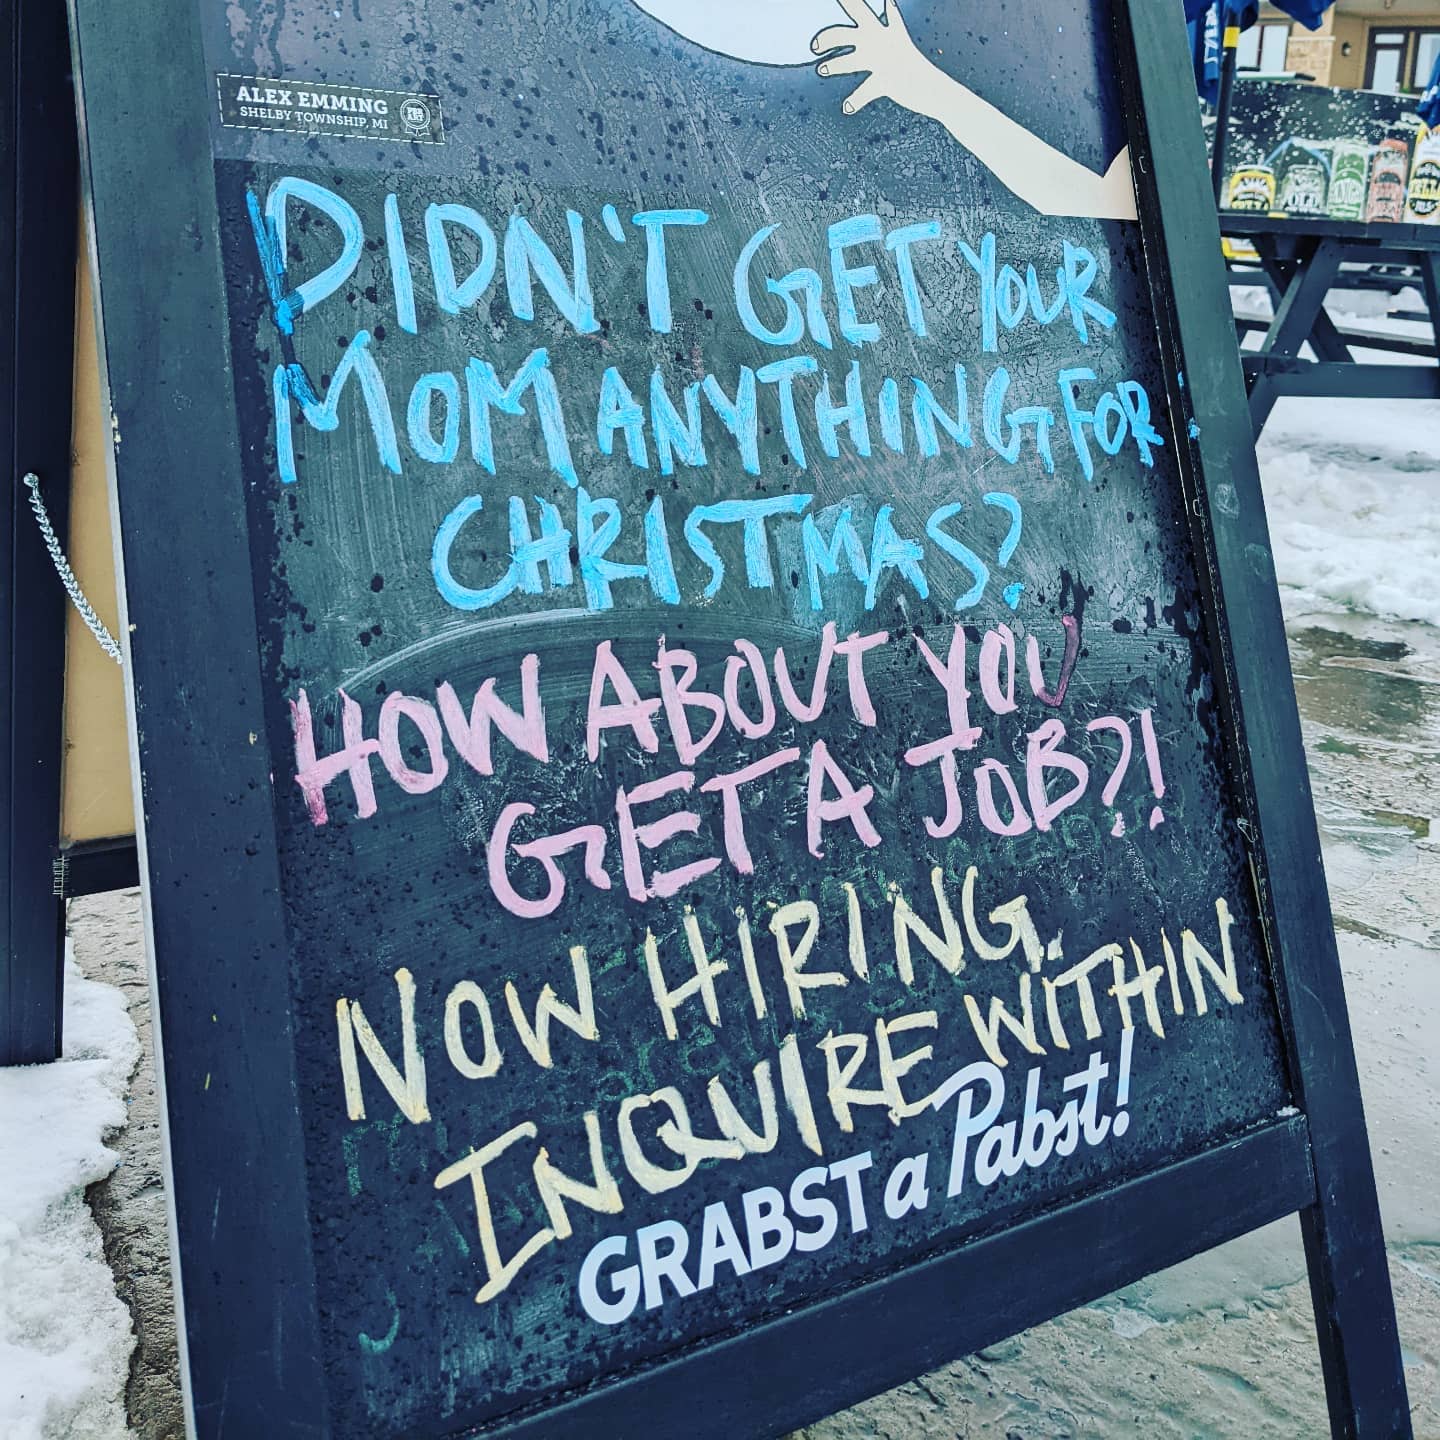 ALEX EMMING
SHELBY TOWNSHIP, MI
PBR
ART
DIDN'T GET YOUR
MOM ANYTHING FOR
CHRISTMAS?
HOW ABOUT YOU
GET A JOB?!
NOW HIRING.
INQUIRE WITHIN
GRABST a Pabst!